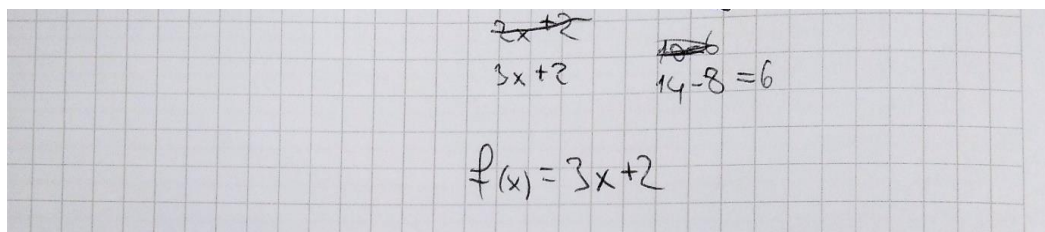 2x+2
3x+2
10-6
14-8=6
f(x)=3x+2